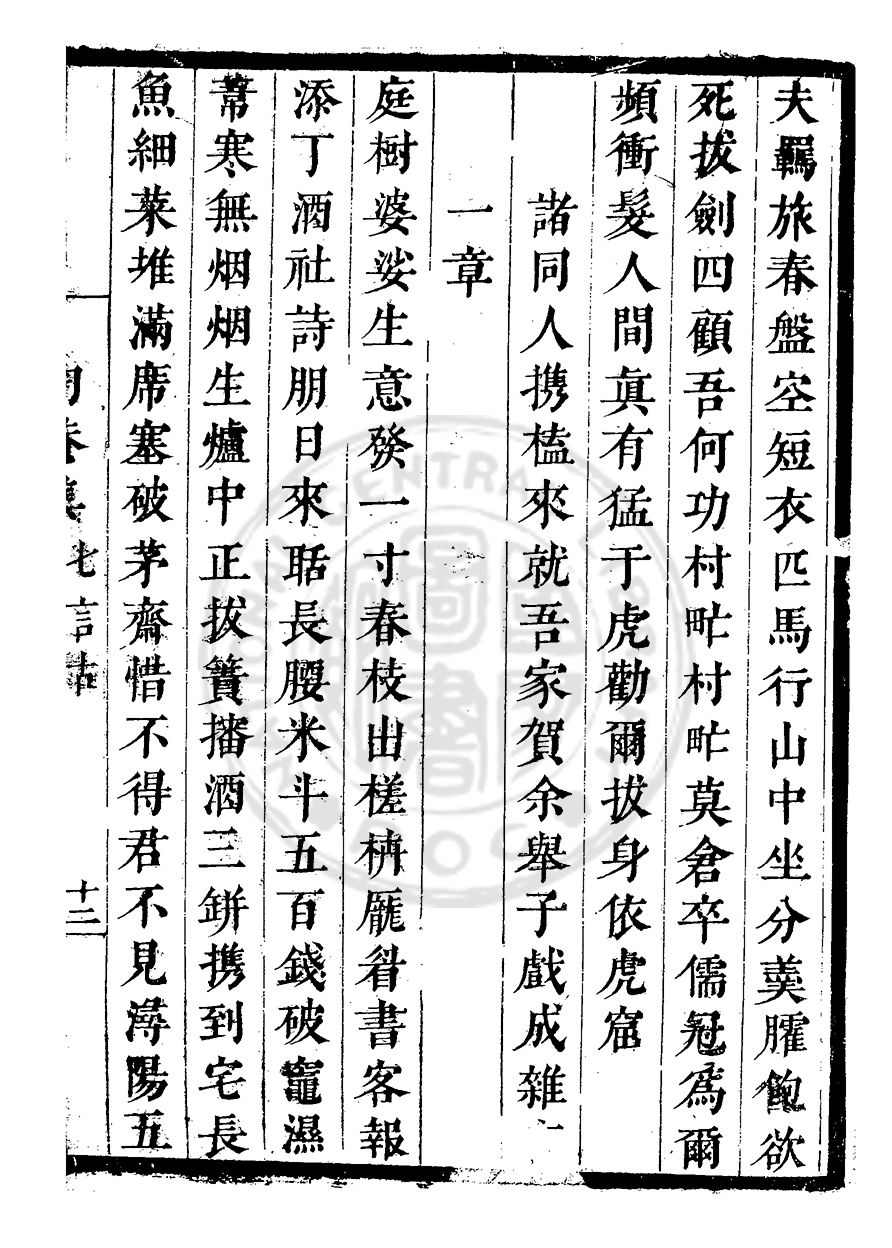 夫羈旅春盤空短衣匹馬行山中坐分羹臛飽欲
死拔劍四顧吾何功村甿村甿莫倉卒儒冠爲爾
頻衝髮人間眞有猛于虎勸爾拔身依虎窟
諸同人携榼來就吾家賀余舉子戲成雜
一章
庭樹婆娑生意發一寸春枝出槎枿厖眉書客報
添丁酒社詩朋日來聒長腰米斗五百錢破竈濕
葦寒無烟烟生爐中正拔簀播酒三缾携到宅長
魚細菜堆滿席塞破茅齋惜不得君不見潯陽五
七言古
十二